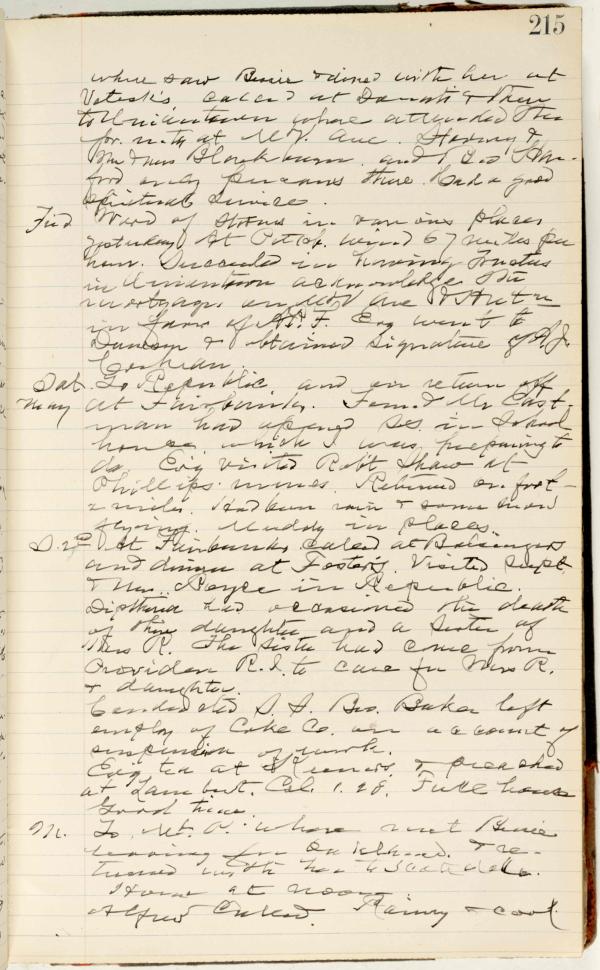 215
where saw Bessie & dined with her at
called at &
to Uniontown where attended the
at Mt. V. Ave. Stormy &
Mr & Mrs Blackburn and
ford only persons there. Had a good
spiritual service.
Frid Word of storms in various places
yesterday. At Pittsb. wind 67 miles per
hour. Succeeded in having Trustees
in Uniontown acknowledge the
mortgages on Mt V Ave
in favor of F. Evg went to
Dawson & obtained signature of A. J.
Cochran
Sat. To Republic and on return off
May at Fairbanks. Found Mr East-
man had opened S.S. in School
house, which I was preparing to
do. Evg visited Robt Shaw at
Phillips mines. Returned on foot
2 miles. Had been rain & some snow
flying. Muddy in places.
S. 2nd At Fairbanks called at
and dinner at Foster's. Visited Supt.
& Mrs. Royce in Republic.
Diptheria had occasioned the death
of their daughter and a sister of
Mrs R. The sister had come from
Providen R.I. to care for Mrs R.
& daughter.
Conducted S.S. Bro. Baker left
employ of Coke Co. on account of
suspension of work.
Evg tea at & preached
at Lambert. Col. 1.28. Full house
Good time.
M. To Mt. P. where met Bessie
leaving for & re-
turned with her to Scottdale.
Home at noon.
Alfred called. Rainy & cool.